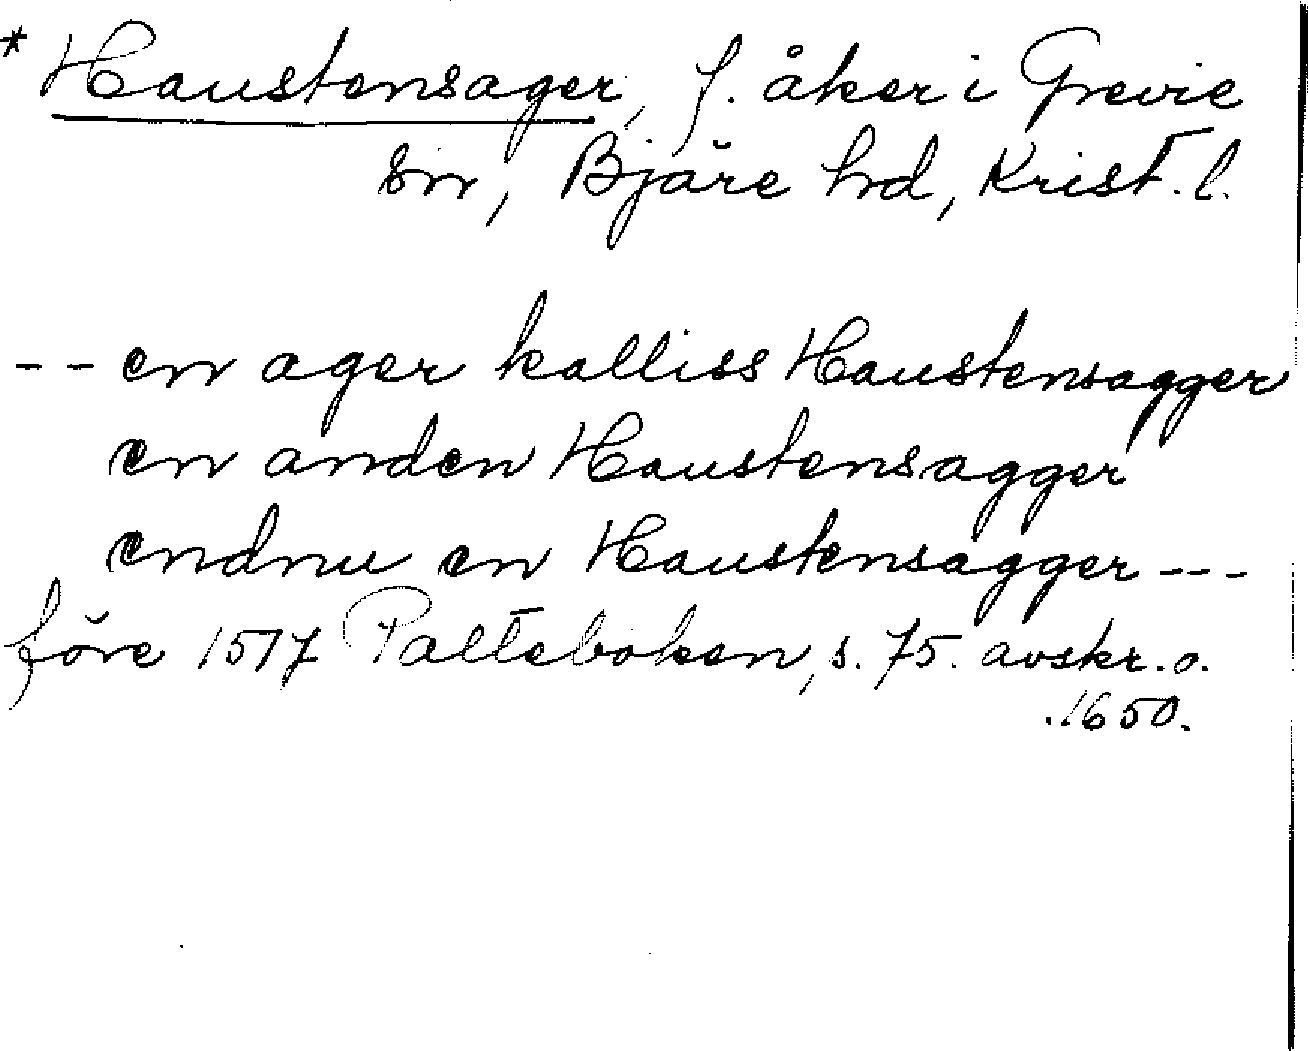 * Haustensager, f. åker i Grevie
sn, Bjäre hd, Krist. l.
-- en ager kalliss Haustensagger
en anden Haustensagger
endnu en Haustensagger ---
före 1517 Palteboken, s. 75. avskr. o.
1650.